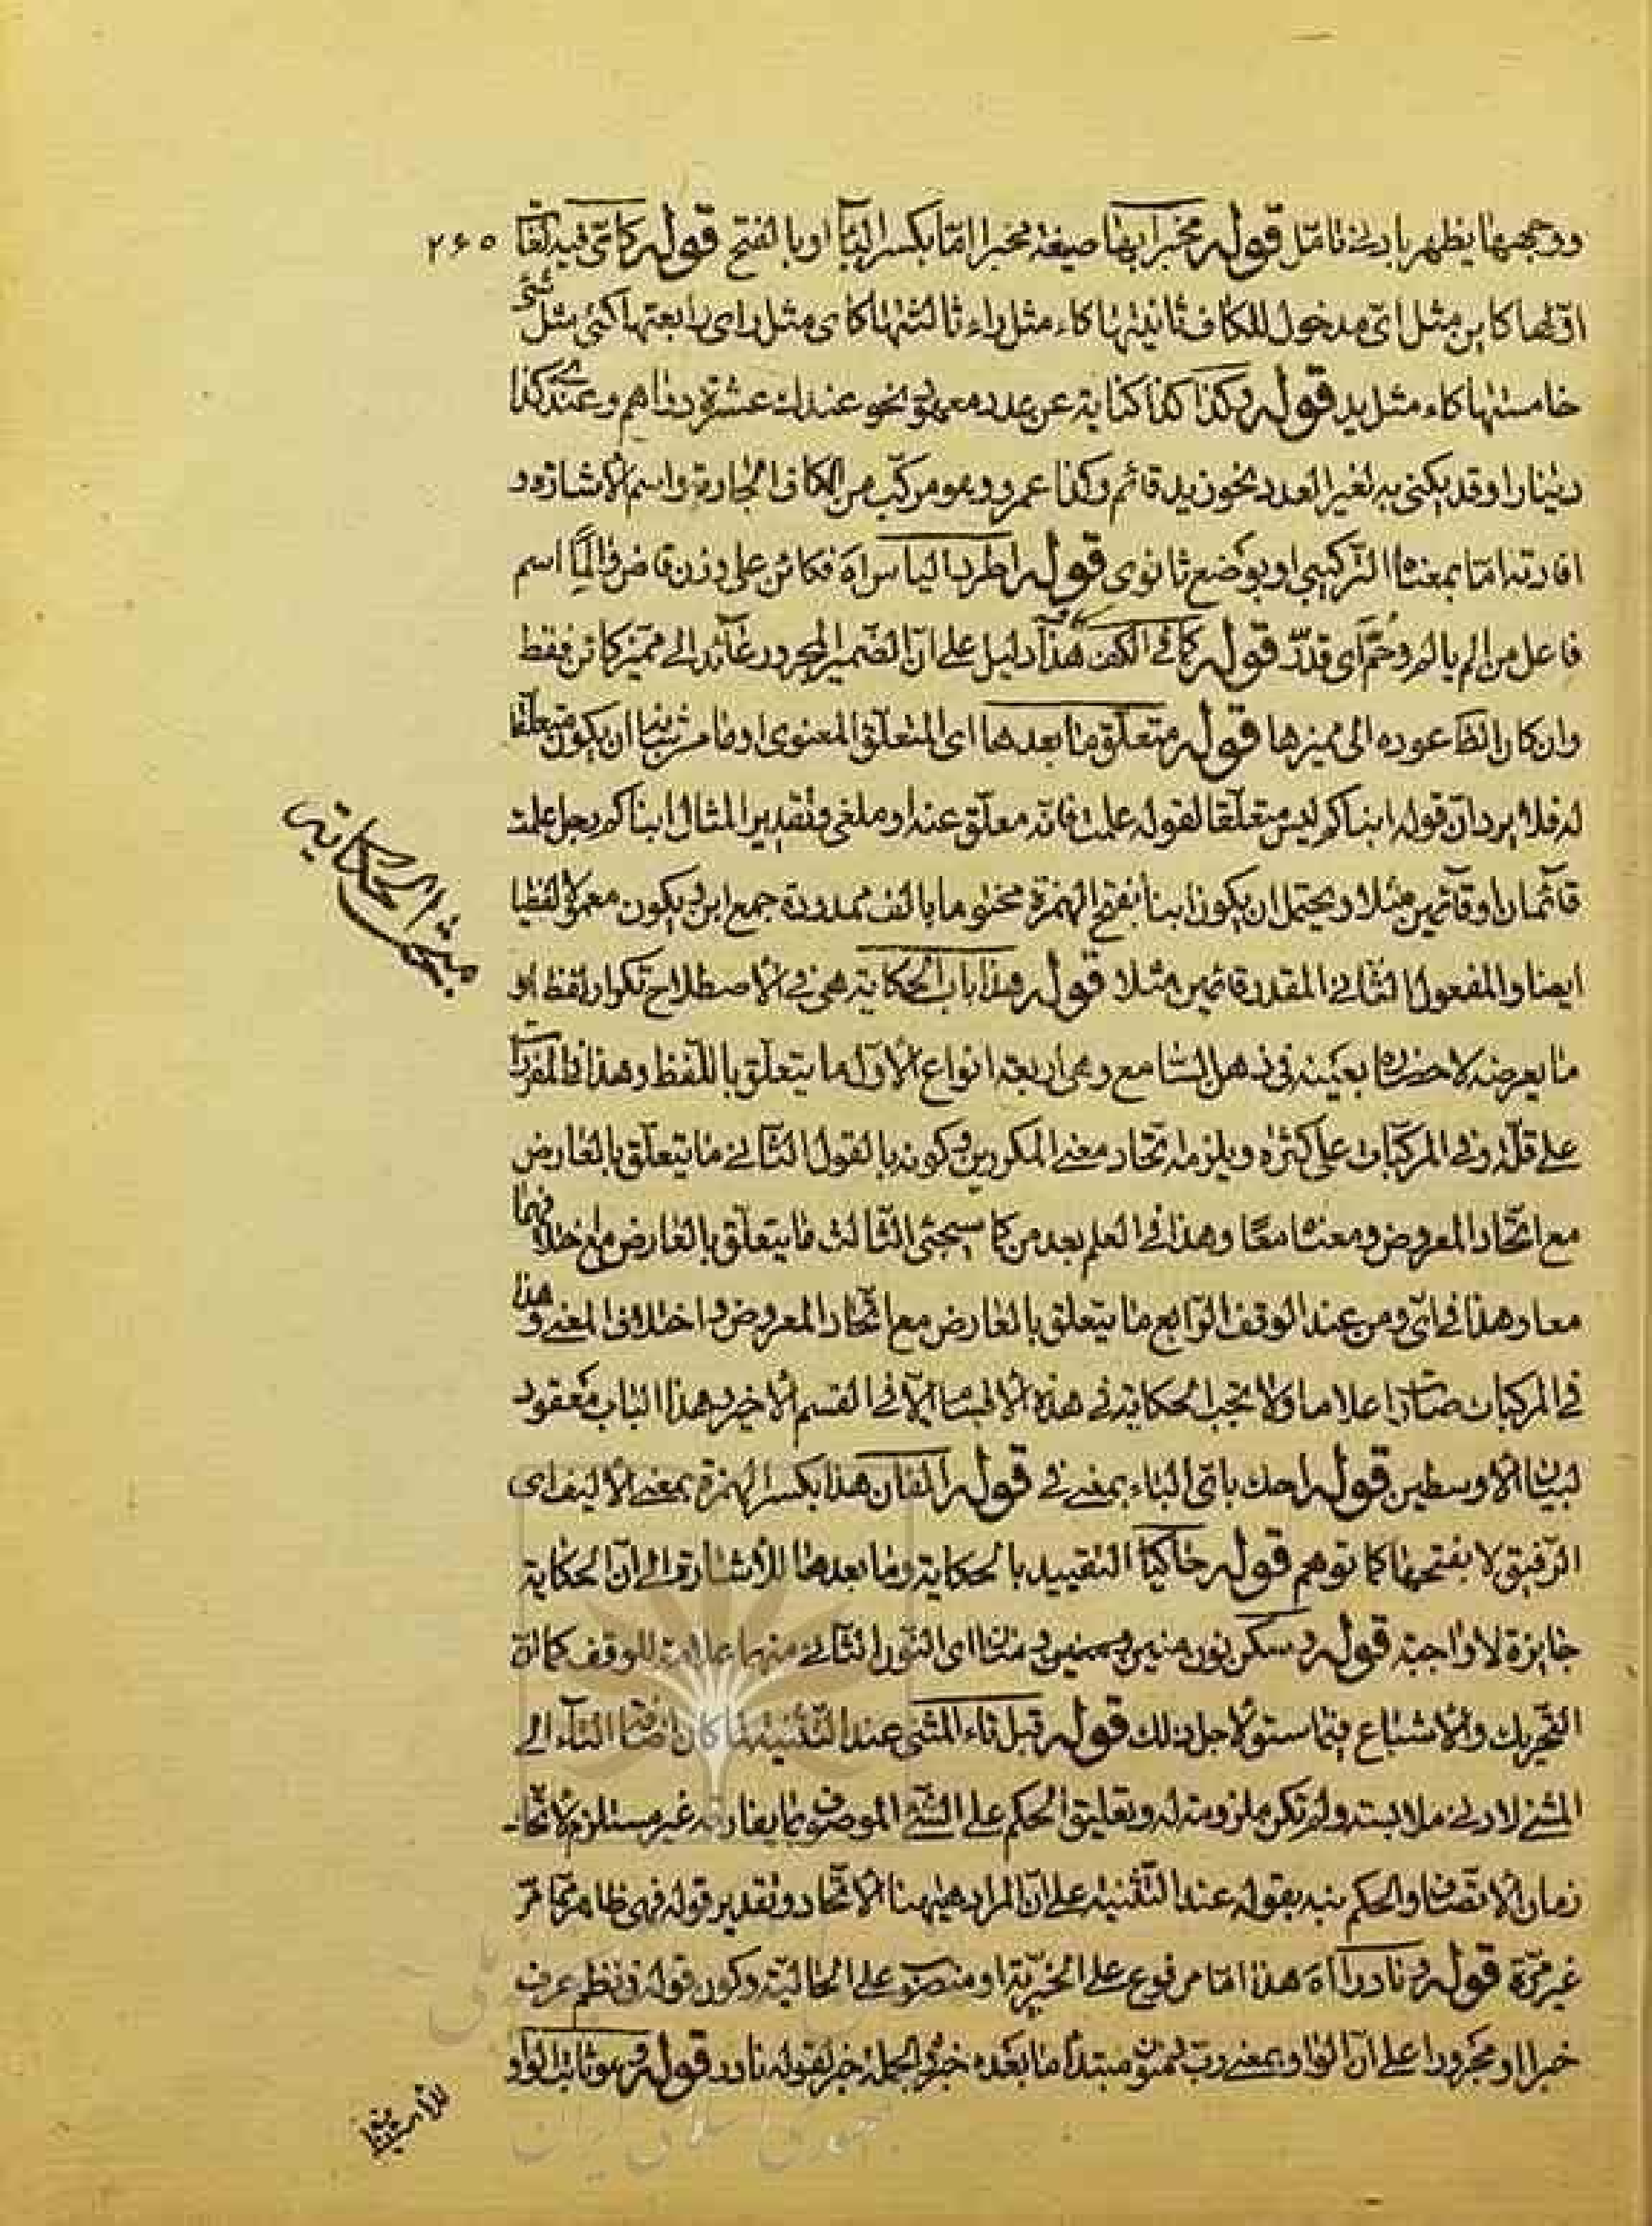 ووجهها يظهر بادنى تامّل قوله مخبرا بها صيغة مخبرا امّا بكسر الباء او بالفتح قوله كاىّ فيه لغا ٢٤٥
اولها كاين مثل اىّ مدخول للكاف ثانيتها كاء مثل راء ثالثتها كاى مثل راى رابعتها كئى مثل شئ
خامستها كاء مثل يد قوله وكذا كذا كناية عن عدد معهود نحو عندك عشرة دراهم وعندى كذا
دينارا وقد يكنى به لغير العدد نحو زيد قائم وكذا عمرو وهو مركّب من الكاف الجارة واسم الاشارة و
افادته امّا بمعناه التركيبى او بوضع ثانوى قوله اطرد الياس اه فكائن على وزن قاض والمًا اسم
فاعل من الم يالم وحُمَّ اى قدّر قوله كائى الكهف هذا دليل على انّ الضمير المجرور عائد الى مميّز كائن فقط
وان كان الظ عوده الى مميزها قوله متعلّق ما بعدها اى المتعلّق المعنوى او ما من شانها ان يكون متعلقا
له فلا يرد انّ قوله ابناكم ليس متعلّقا لقوله علمت فانّه معلّق عنه او ملغى وتقدير المثال ابناكم رجل علمت
قائمان او قائمين مثلا ويحتمل ان يكون ابنا بفتح الهمزة مختوما بالف ممدودة جمع ابن ويكون معمولا لفظيا
ايضا والمفعول الثانى المقدر قائمين مثلا قوله هذا باب الحكاية هى فى الاصطلاح تكرار لفظ او
ما يعرضه لاحضاره بعينه فى ذهن السّامع وهى اربعة انواع الاوّل ما يتعلّق باللّفظ وهذا فى المفردات
على قلّة وفى المركّبات على كثرة ويلزمه اتّحاد معنى المكررين وكونه بالقول الثانى ما يتعلّق بالعارض
مع اتّحاد المعروض ومعناه معًا وهذا فى العلم بعد من كما سيجئى الثّالث ما يتعلّق بالعارض مع اختلافهما
معا وهذا فى اىّ ومن عند الوقف الرّابع ما يتعلّق بالعارض مع اتّحاد المعروض واختلاف المعنى وهذا
فى المركبات صارت اعلاما ولا تجب الحكاية فى هذه الاقسام الّا فى القسم الاخير وهذا الباب معقود
لبيان الاوسطين قوله احك باىّ الباء بمعنى فى قوله الفان هذا بكسر الهمزة بمعنى الاليف اى
الرّفيق لا بفتحها كما توهم قوله حاكيا التقييد بالحكاية وما بعدها للاشارة الى انّ الحكاية
جايزة لا واجبة قوله وسكن نون منين ومنين و منتا اى النّون الثانى منهما علامة للوقف كما انّ
التحريك والاشباع فيما ستو لاجل ذلك قوله قبل تاء المثنى عند التّثنية لما كان اضافة التّاء الى
المثنى لادنى ملابسة ولم تكن ملزومة له وتعليق الحكم على الشّئ الموصوف بما يفارقه غير مستلزم لاتّحاد
زمان الاتّصاف والحكم نبه بقوله عند التّثنية على انّ المراد هيهنا الاتّحاد وتقدير قوله فهى ظاهر ممّا مرّ
غير مرّة قوله ونادرا اه هذا امّا مرفوع على الخبريّة او منصوب على الحالية وكون قوله فى نظم عرف
خبرا او مجرورا على انّ الواو بمعنى ربّ فمنون مبتدا ما بعده خبره والجملة خبر لقوله نادر قوله وهو ثابت الواو
مبحث الحكاية
للاستيناف